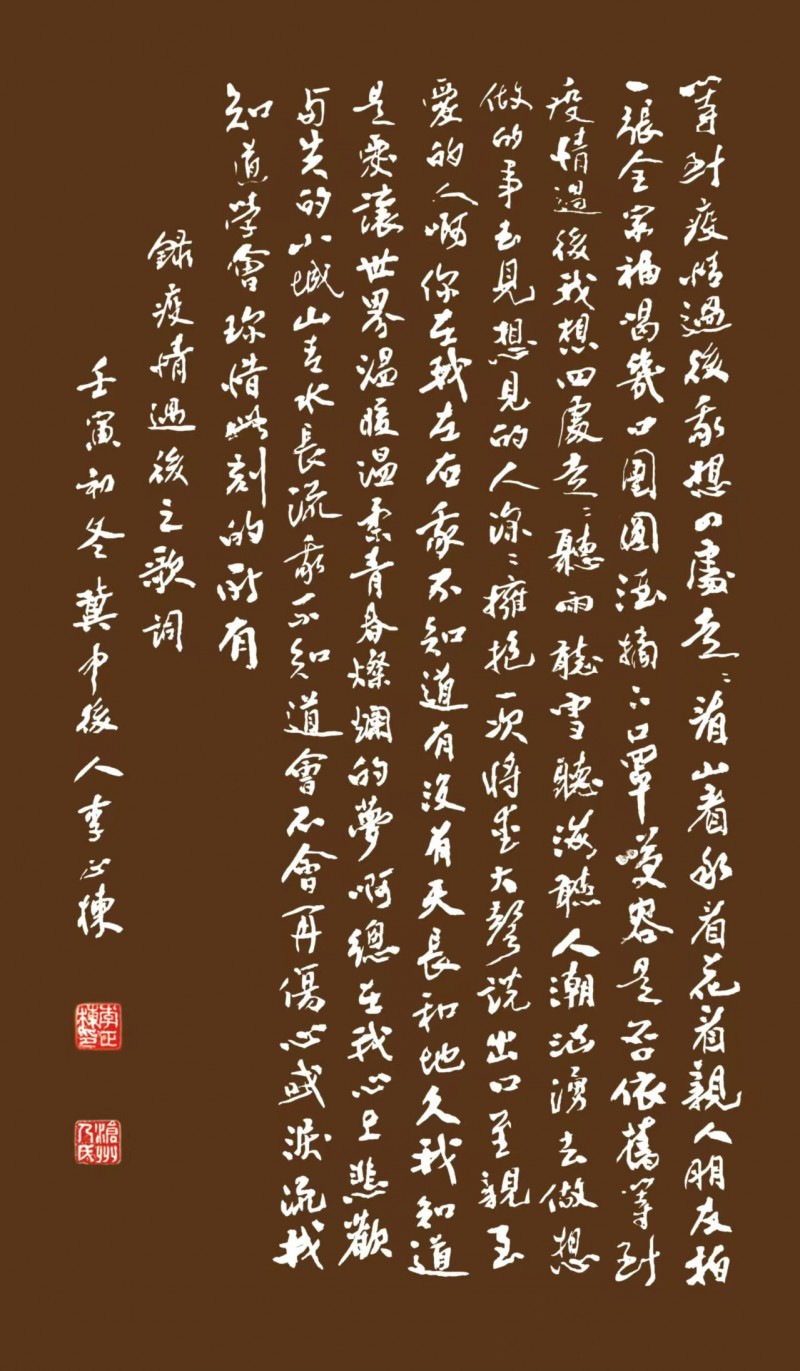 等到疫情過後我想四處走走看山看水看花看親人朋友拍
一張全家福喝幾口團圓酒摘下口罩笑容是否依舊等到
疫情過後我想四處走走聽雨聽雪聽海聽人潮洶湧去做想
做的事去見想見的人深深擁抱一次將愛大聲説出口至親至
愛的人啊你在我左右我不知道有没有天長和地久我知道
是愛讓世界温暖温柔青春燦爛的夢啊總在我心上悲歡
與失的小城山青水長流我不知道會不會再傷心或淚流我
知道學會珍惜此刻的所有
録疫情過後之歌詞
壬寅初冬冀中後人李正棟
李正棟印
滄州乃氏